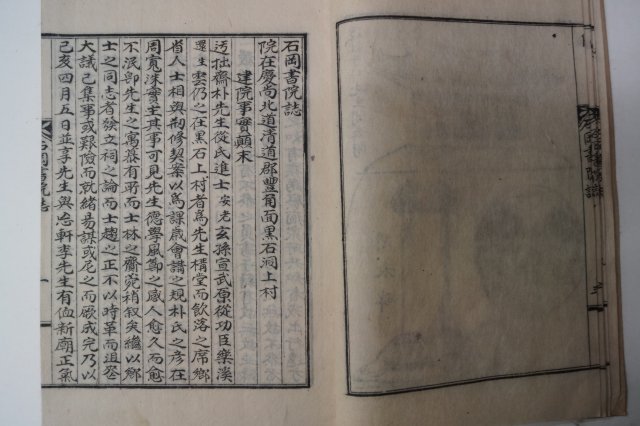 石岡書院誌
院在慶尚北道清道郡豐角面黑石洞上村
建院事實顚末
逃拙齋朴先生從氏進士安老玄孫宣武原從功臣樂溪
還生雲仍之在黑石上村者爲先生楷堂而飮落之席鄉
省人士相與刱修契案以爲課歲會講之規朴氏之彦在
周寬洙實主其事可見先生德學風節之感人愈久而愈
不泯卽先生之寓慕有所而士林之齋菀稍叙矣繼以鄉
士之同志者倡立祠之論而士趨之正不以時革而沮登
大議已集事或艱險而就緖易謀或尼之而厥成完乃以
己亥四月五日並享先生與忘軒李先生有侐新廟正氣
石岡書院誌
一